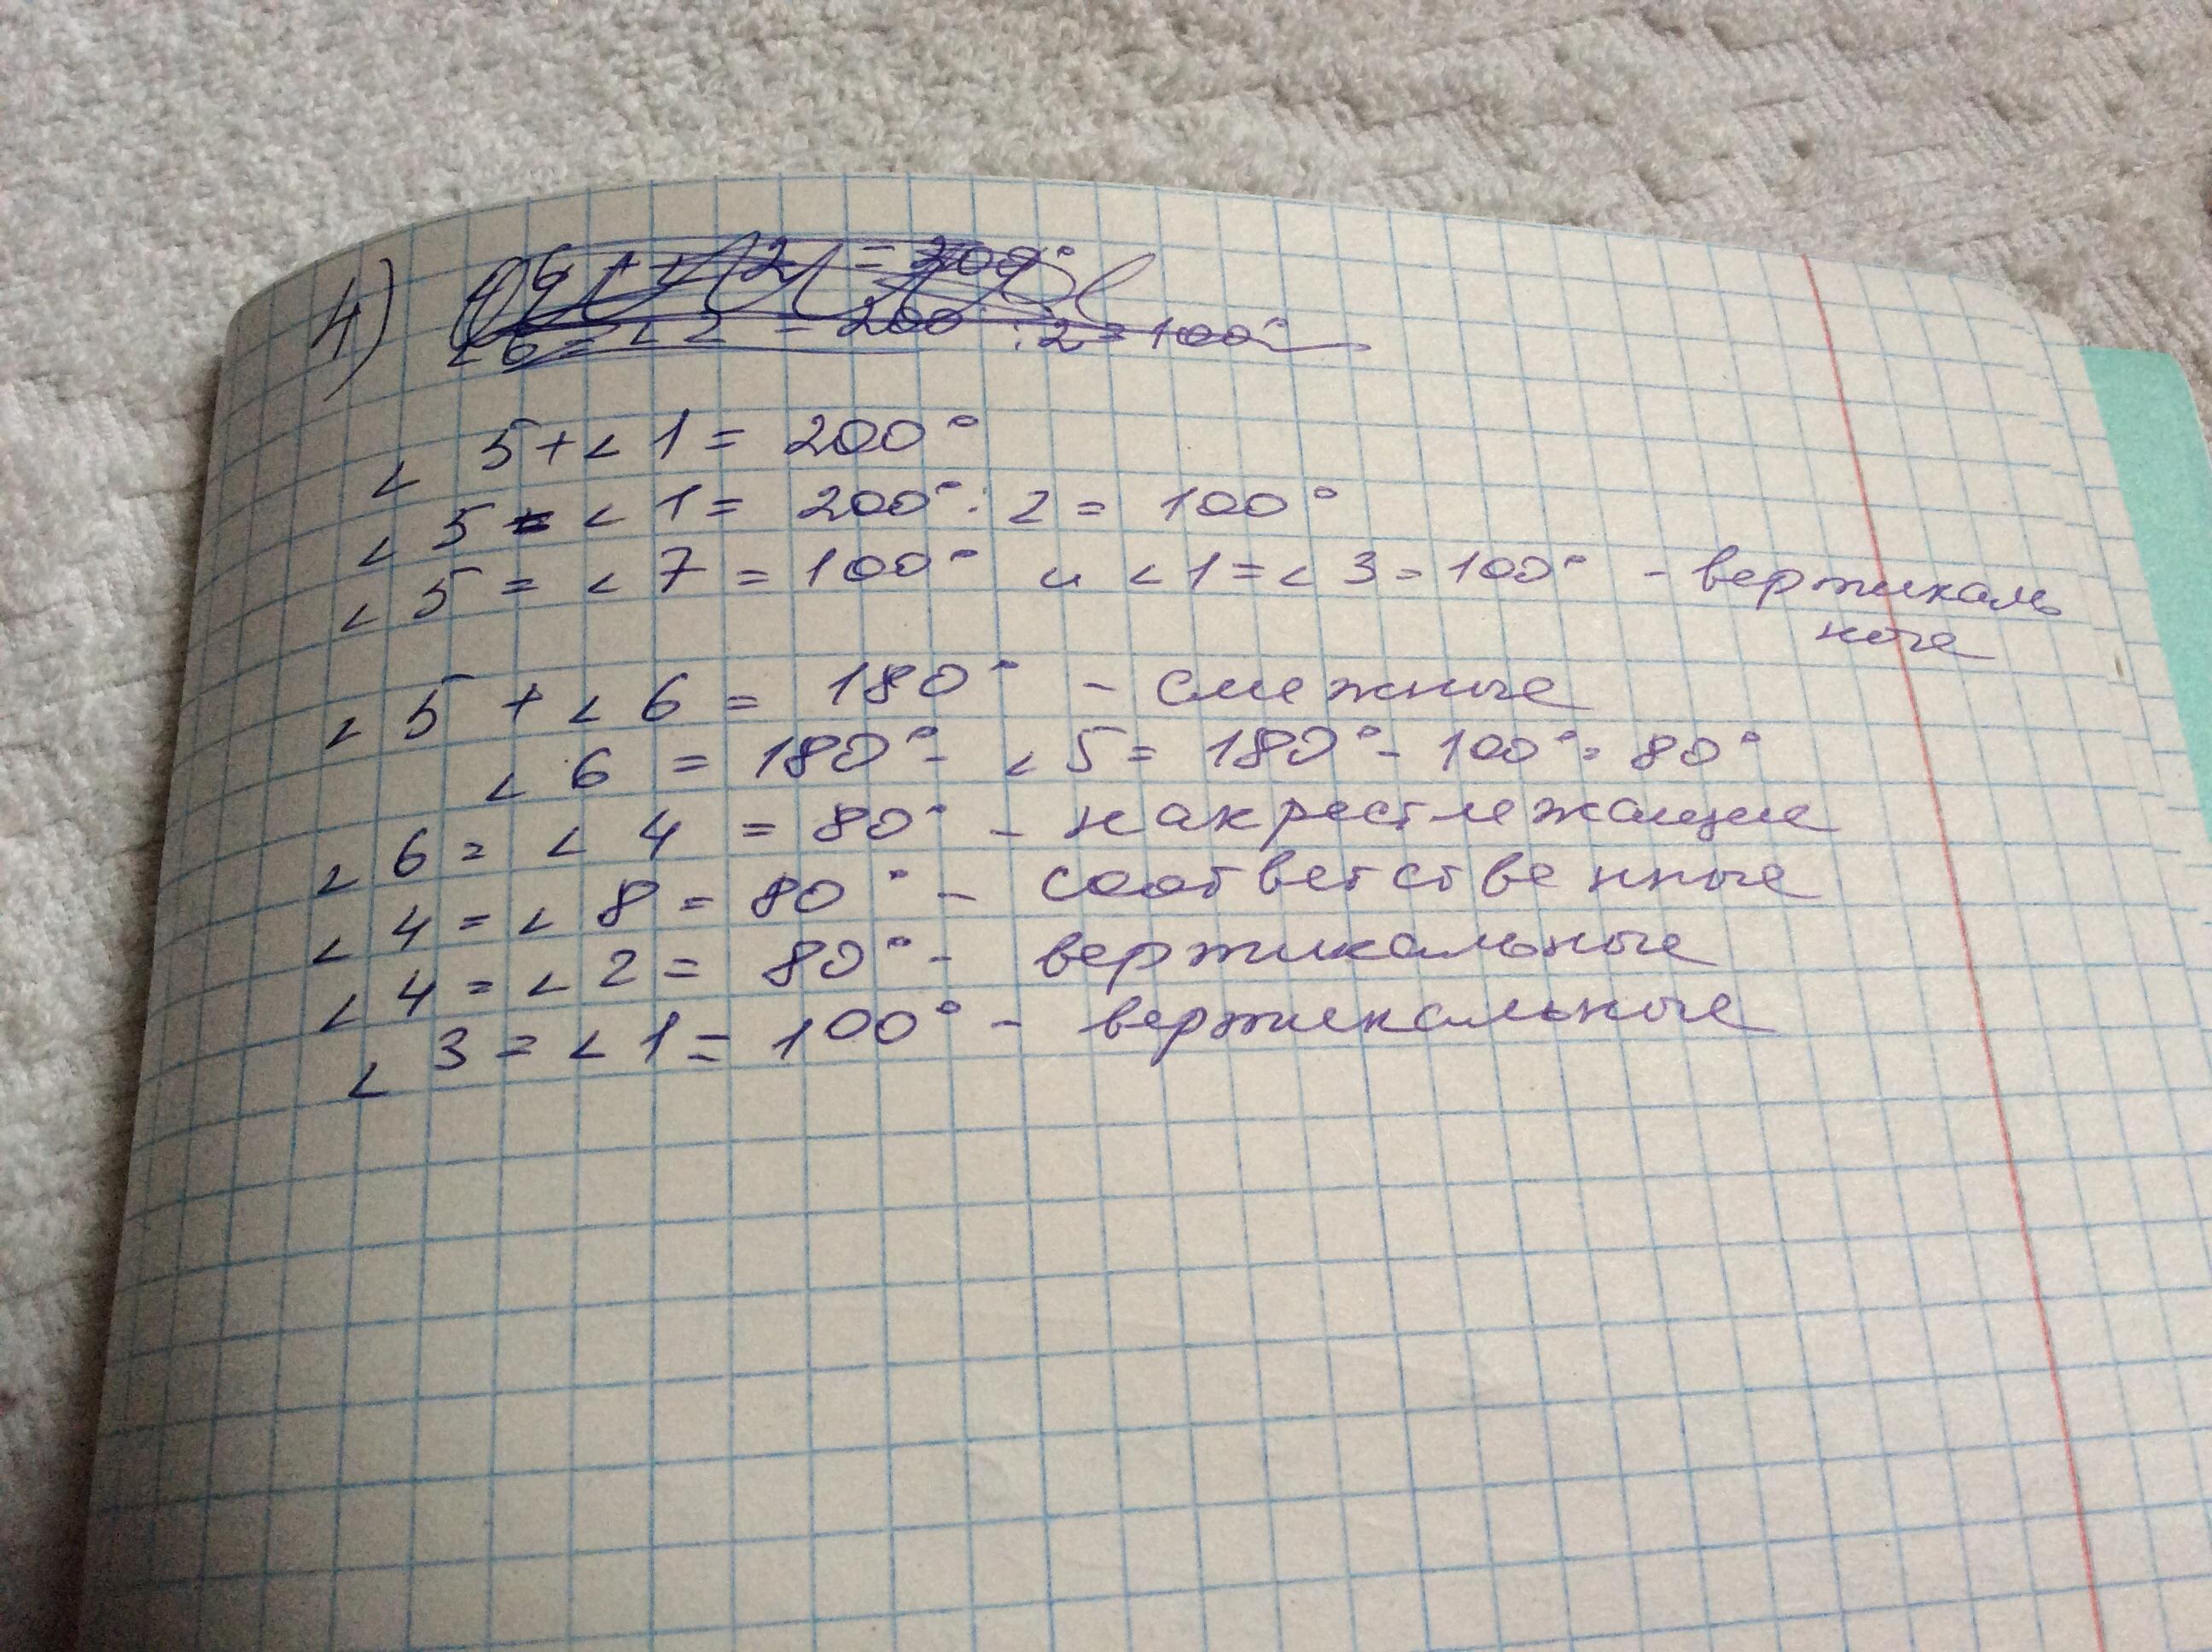 4)
∠6 = ∠2 = 200° : 2 = 100°
∠5 + ∠1 = 200°
∠5 = ∠1 = 200° : 2 = 100°
∠5 = ∠7 = 100° и ∠1 = ∠3 = 100° - вертикаль
ные
∠5 + ∠6 = 180° - смежные
∠6 = 180° - ∠5 = 180° - 100° = 80°
∠6 = ∠4 = 80° - накрестлежащие
∠4 = ∠8 = 80° - соответственные
∠4 = ∠2 = 80° - вертикальные
∠3 = ∠1 = 100° - вертикальные